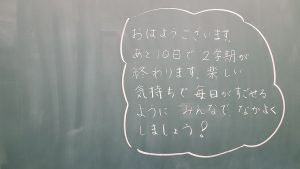 おはようございます。
あと10日で2学期が
終わります。楽しい
気持ちで毎日がすごせる
ように みんなで なかよく
しましょう?